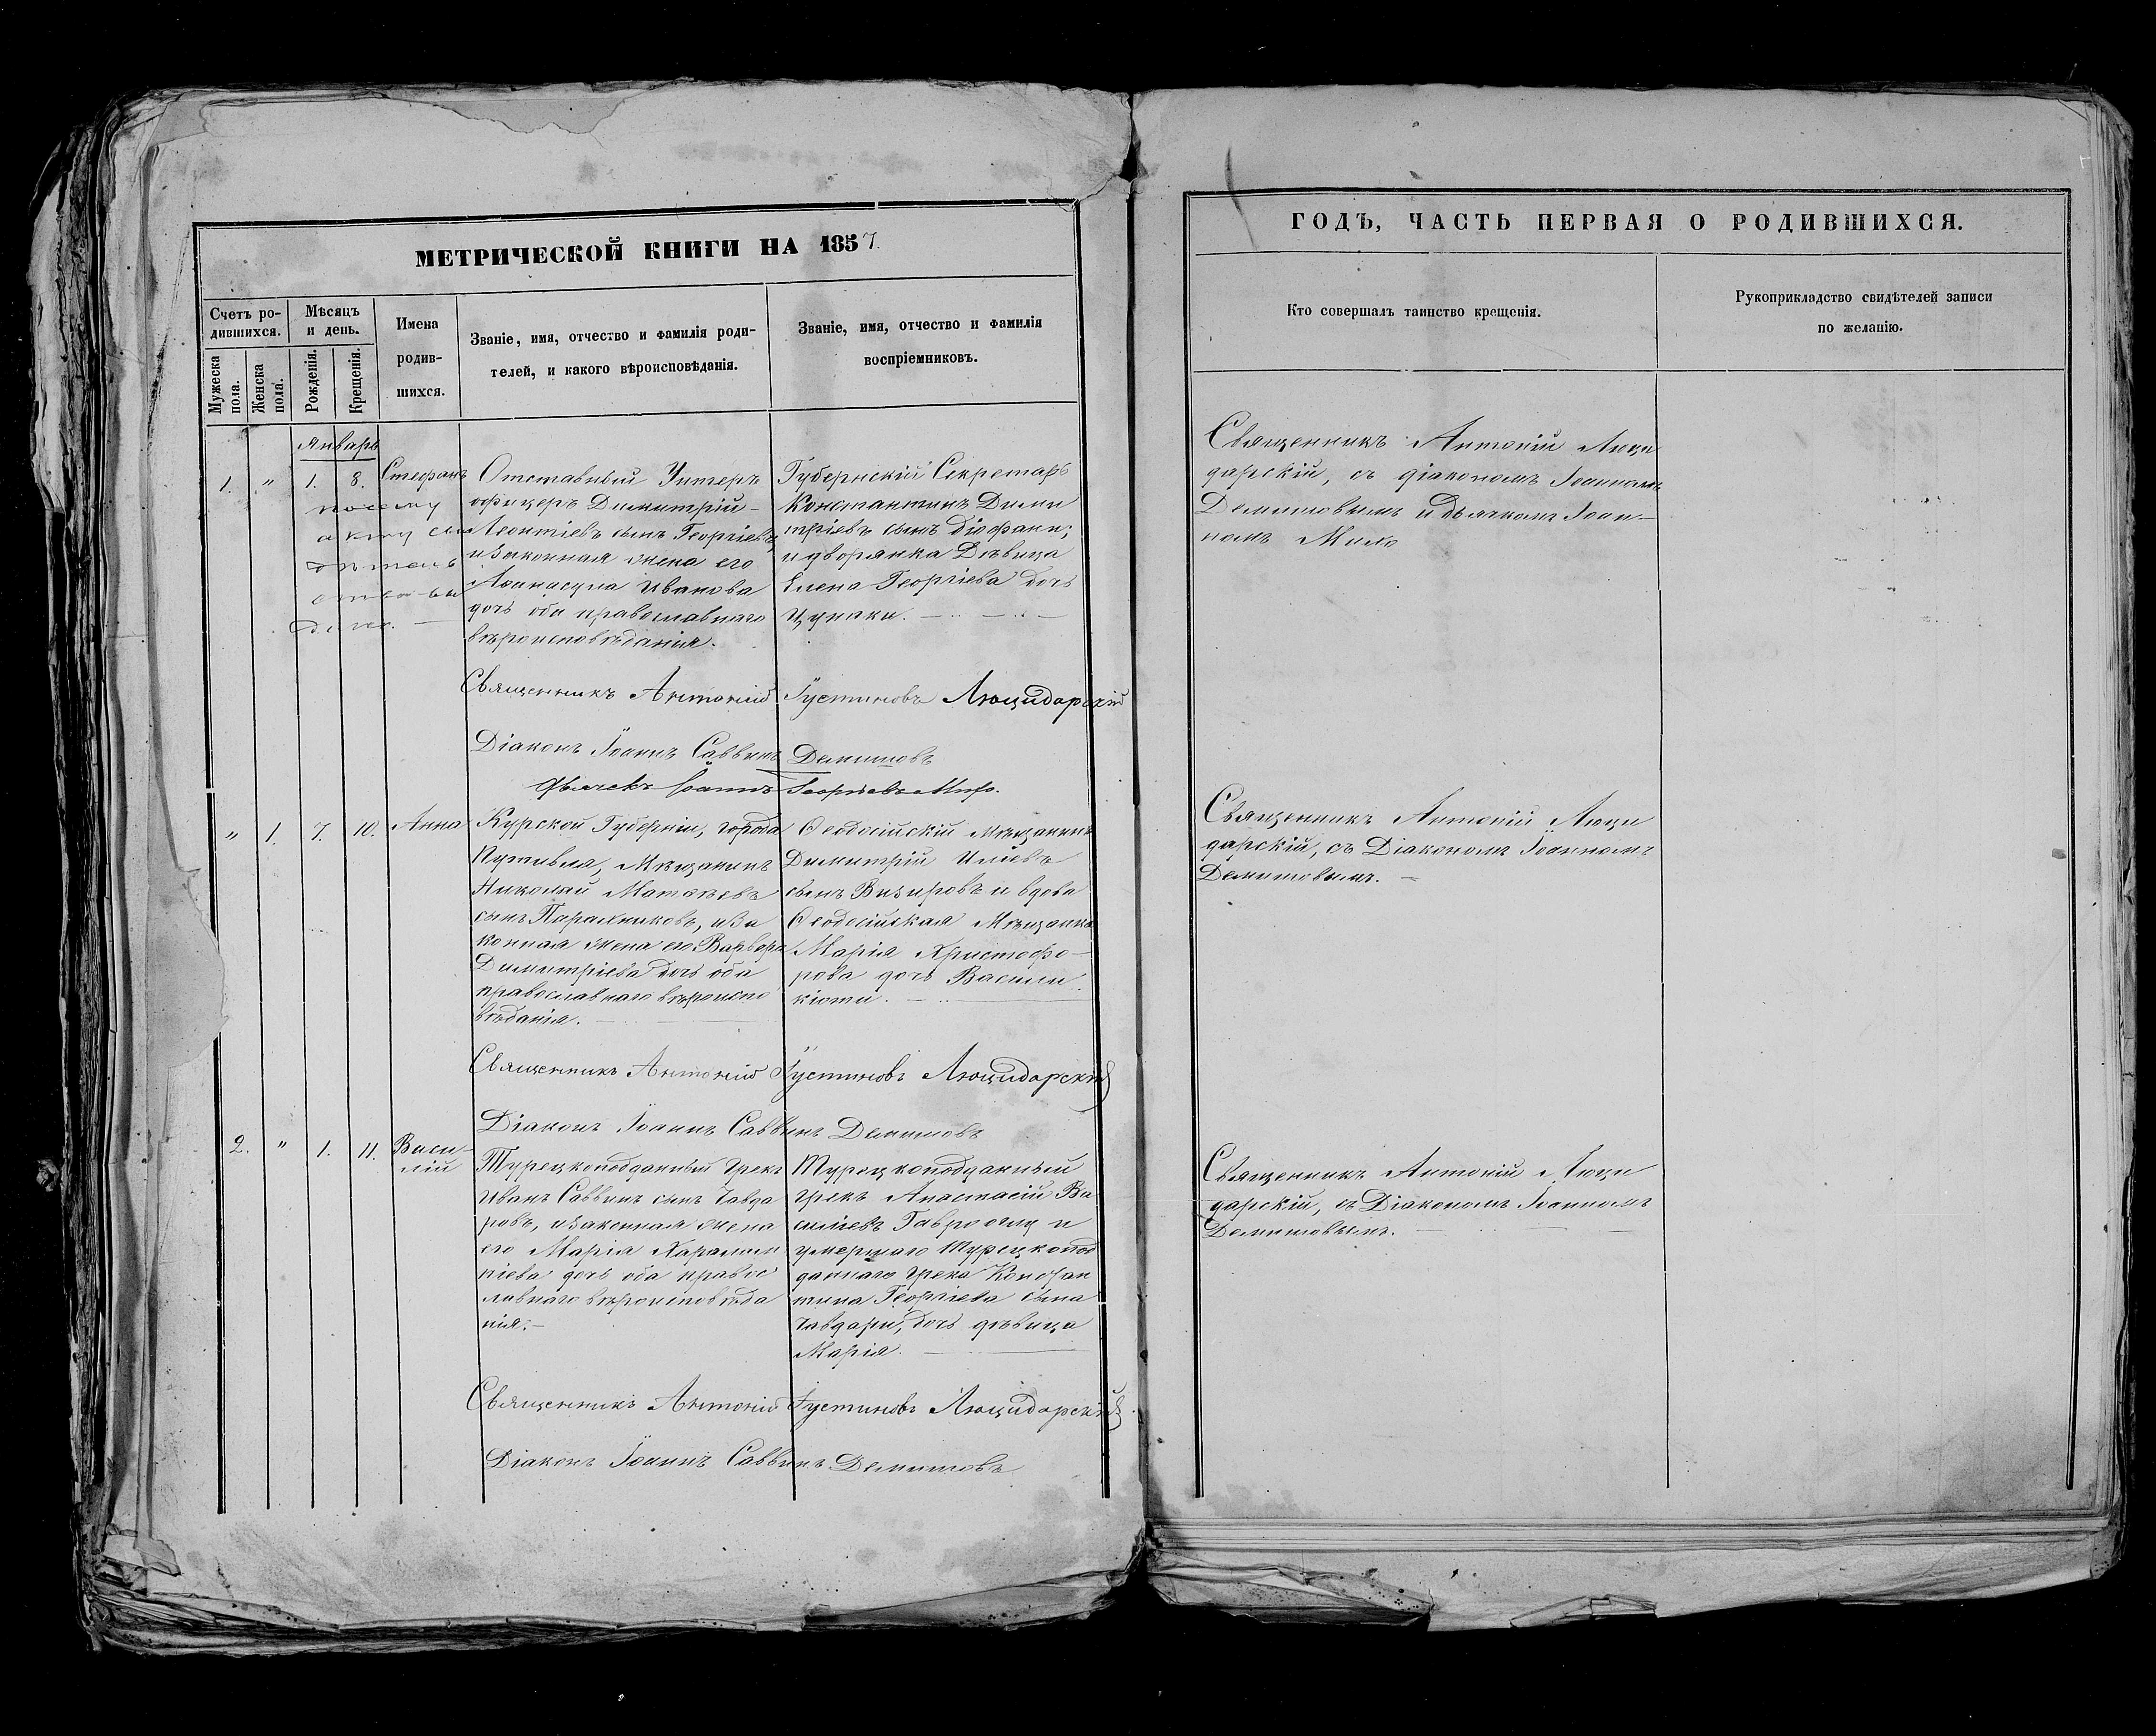 МЕТРИЧЕСКОЙ КНИГИ НА 1857.
Счетъ ро-
дившихся.
Мужеска
пола.
Женска
пола.
Мѣсяцъ
и день.
Рожденія.
Крещенія.
Имена
родив-
шихся.
Званіе, имя, отчество и фамилія роди-
телей, и какого вѣроисповѣданія.
Званіе, имя, отчество и фамилія
воспріемниковъ.
Январь
1. " 1. 8. Стефанъ
посему
акту
Отставный Унтеръ
офицеръ Димитрій
Леонтіевъ сынъ Георгіевъ,
и законная жена его
Иванова
дочь оба православнаго
вѣроисповѣданія.
Губернскій Секретарь
Константинъ Дими
тріевъ сынъ Діофани;
и дворянка Дѣвица
Елена Георгіева дочь
Цунаки.
Священникъ Антоній Іустиновъ Люцидарскій
Діаконъ Іоаннъ Саввинъ Демишовъ
Дьячекъ Іоаннъ Георгіевъ
" 1. 7. 10. Анна
Курской Губерніи, города
Путивля, Мѣщанинъ
Николай Матвѣевъ
сынъ Парахниковъ, и за
конная жена его Варвара
Димитріева дочь оба
православнаго вѣроиспо
вѣданія.
Ѳеодосійскій мѣщанинъ
Димитрій Иліевъ
сынъ Визировъ и вдова
Ѳеодосійская Мѣщанка
Марія Христофо-
рова дочь Васили
кіоти.
Священникъ Антоній Іустиновъ Люцидарскій
Діаконъ Іоаннъ Саввинъ Демишовъ
2. " 1. 11. Васи-
лій
Турецкоподданный Грекъ
Иванъ Саввинъ сынъ Чавда
ровъ, и законная жена
его Марія Харалам
піева дочь оба правос
лавнаго вѣроисповѣда
нія.
Турецкоподданный
грекъ Анастасій Ва
силіевъ Гавро оглу и
умершаго Турецкопод
даннаго Грека Констан
тина Георгіева сына
Чавдари, дочь дѣвица
Марія.
Священникъ Антоній Іустиновъ Люцидарскій
Діаконъ Іоаннъ Саввинъ Демишовъ
ГОДЪ, ЧАСТЬ ПЕРВАЯ О РОДИВШИХСЯ.
Кто совершалъ таинство крещенія.
Рукоприкладство свидѣтелей записи
по желанію.
Священникъ Антоній Люци
дарскій, съ діакономъ Іоанномъ
Демишовымъ и дьячкомъ Іоан-
номъ
Священникъ Антоній Люци
дарскій, съ Діакономъ Іоанномъ
Демишовымъ.
Священникъ Антоній Люци
дарскій, съ Діакономъ Іоанномъ
Демишовымъ.